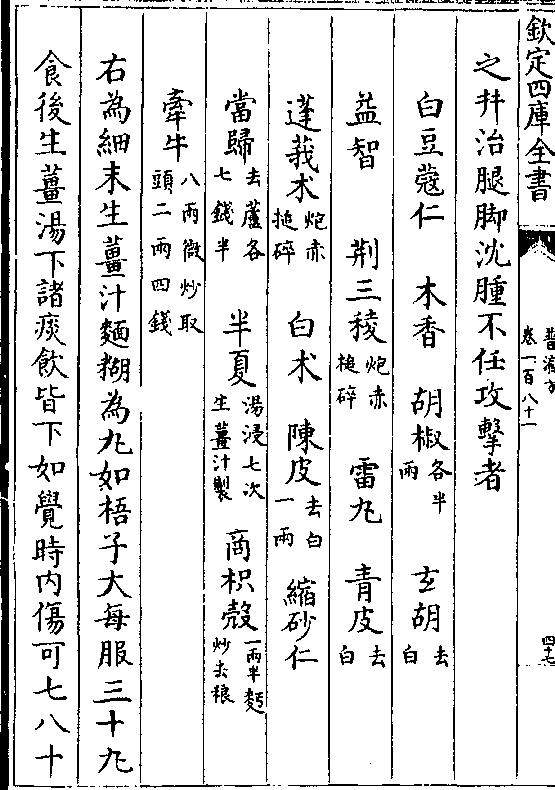 欽定四庫全書
卷一百八十一
四十七
之并治腿脚沈腫不任攻擊者
白豆蔻仁　木香　胡椒各半兩　玄胡去白
益智　荆三稜炮赤槌碎　雷丸　青皮去白
蓬莪术炮赤槌碎　白术　陳皮去白一兩　縮砂仁
當歸去蘆各七錢半　半夏湯浸七次生薑汁製　商枳殼一兩半麫炒去穰
牽牛八兩微炒取頭二兩四錢
右為細末生薑汁麵糊為丸如梧子大每服三十丸
食後生薑湯下諸痰飲皆下如覺時内傷可七八十